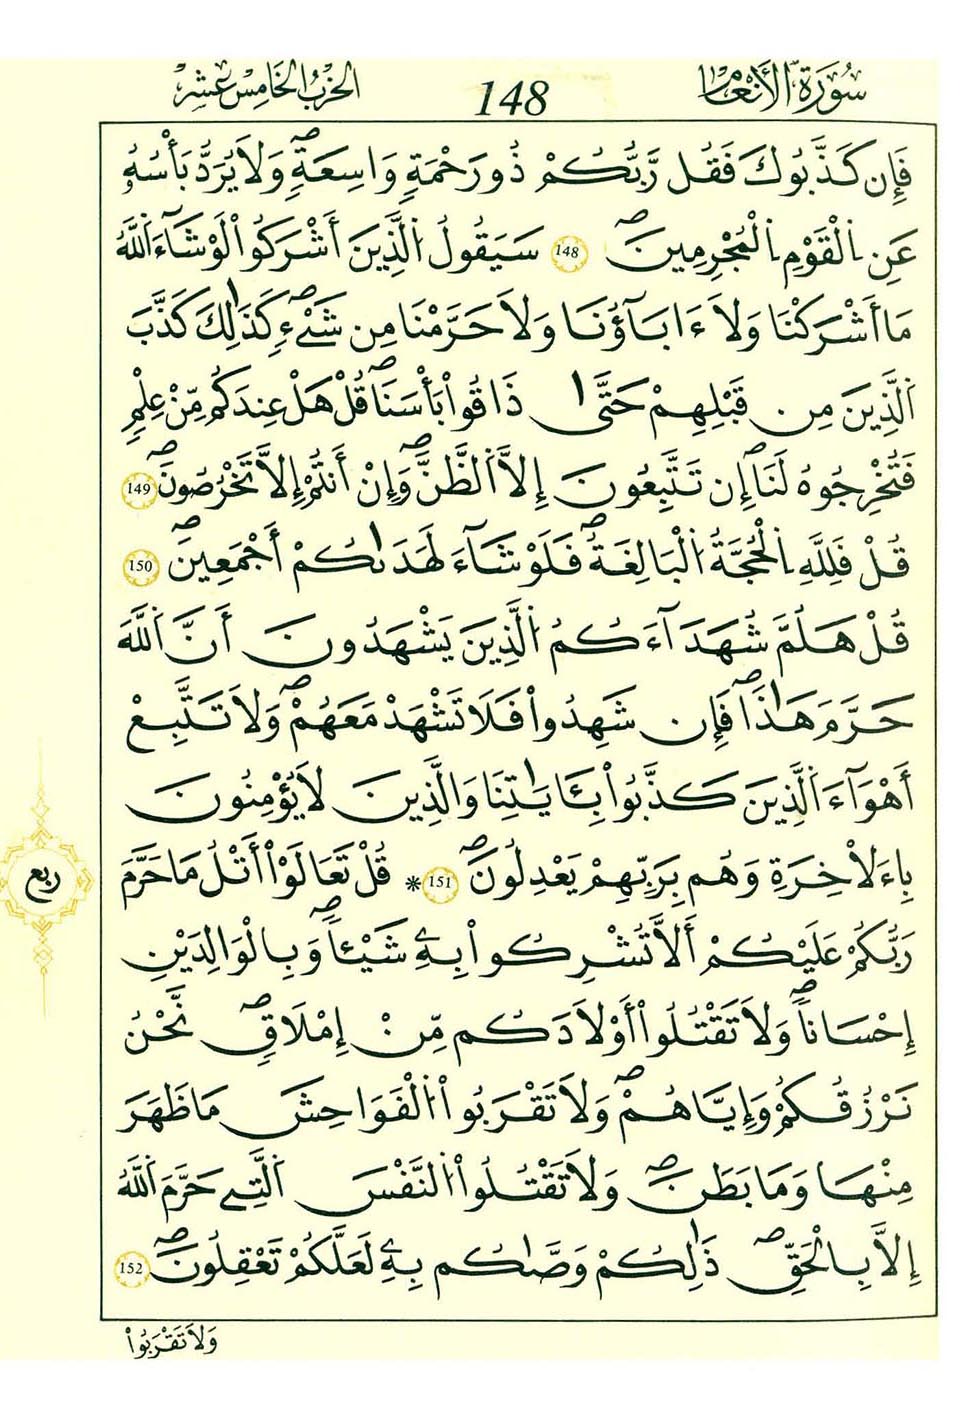 سُورَةُ الْأَنْعَامِ
148
الحِزْبُ الخَامِسَ عَشَرَ
فَإِن كَذَّبُوكَ فَقُل رَّبُّكُمْ ذُو رَحْمَةٍ وَاسِعَةٍۖ وَلَا يُرَدُّ بَأْسُهُۥ
عَنِ اِلْقَوْمِ اِلْمُجْرِمِينَۖ 148 سَيَقُولُ اُلذِينَ أَشْرَكُواْ لَوْ شَآءَ اَللَّهُ
مَا أَشْرَكْنَا وَلَا ءَابَآؤُنَا وَلَا حَرَّمْنَا مِن شَےْءٖۖ كَذَٰلِكَ كَذَّبَ
اَلذِينَ مِن قَبْلِهِمْ حَتَّىٰ ذَاقُواْ بَأْسَنَاۖ قُلْ هَلْ عِندَكُم مِّنْ عِلْمٖ
فَتُخْرِجُوهُ لَنَاۖ إِن تَتَّبِعُونَ إِلَّا اَلظَّنَّۖ وَإِنْ أَنتُمْ إِلَّا تَخْرُصُونَۖ 149
قُلْ فَلِلَّهِ اِلْحُجَّةُ اُلْبَالِغَةُۖ فَلَوْ شَآءَ لَهَدَىٰكُمْ أَجْمَعِينَۖ 150
قُلْ هَلُمَّ شُهَدَآءَكُمُ اُلذِينَ يَشْهَدُونَ أَنَّ اَللَّهَ
حَرَّمَ هَٰذَاۖ فَإِن شَهِدُواْ فَلَا تَشْهَدْ مَعَهُمْۖ وَلَا تَتَّبِعْ
أَهْوَآءَ اَلذِينَ كَذَّبُواْ بِـَٔايَٰتِنَا وَالذِينَ لَا يُؤْمِنُونَ
بِاءَلَاخِرَةِ وَهُم بِرَبِّهِمْ يَعْدِلُونَۖ 151 * قُلْ تَعَالَوْاْ أَتْلُ مَا حَرَّمَ
رَبُّكُمْ عَلَيْكُمْ أَلَّا تُشْرِكُواْ بِهِۦ شَيْـٔاٗۖ وَبِالْوَالِدَيْنِ
إِحْسَاناٗۖ وَلَا تَقْتُلُواْ أَوْلَادَكُم مِّنْ إِمْلَاقٖۖ نَّحْنُ
نَرْزُقُكُمْ وَإِيَّاهُمْۖ وَلَا تَقْرَبُواْ اُلْفَوَاحِشَ مَا ظَهَرَ
مِنْهَا وَمَا بَطَنَۖ وَلَا تَقْتُلُواْ اُلنَّفْسَ اَلتِے حَرَّمَ اَللَّهُ
إِلَّا بِالْحَقِّۖ ذَٰلِكُمْ وَصَّىٰكُم بِهِۦ لَعَلَّكُمْ تَعْقِلُونَۖ 152
ربع
وَلَا تَقْرَبُواْ